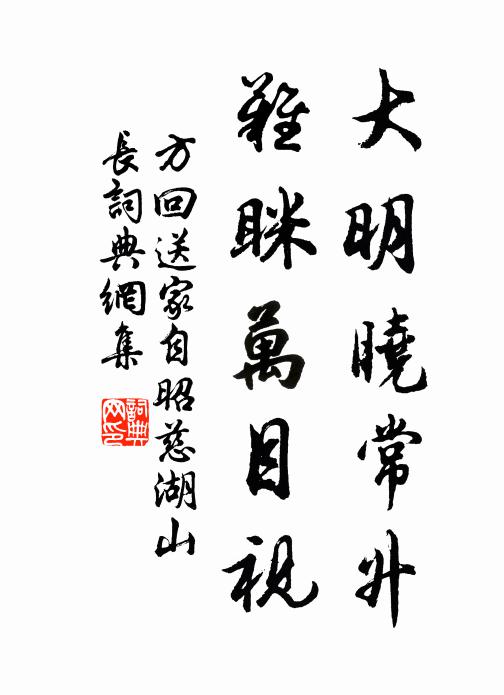 大明曉常升
難眯萬目視
方回送家自昭慈湖山
長詞典網集
詞典網印